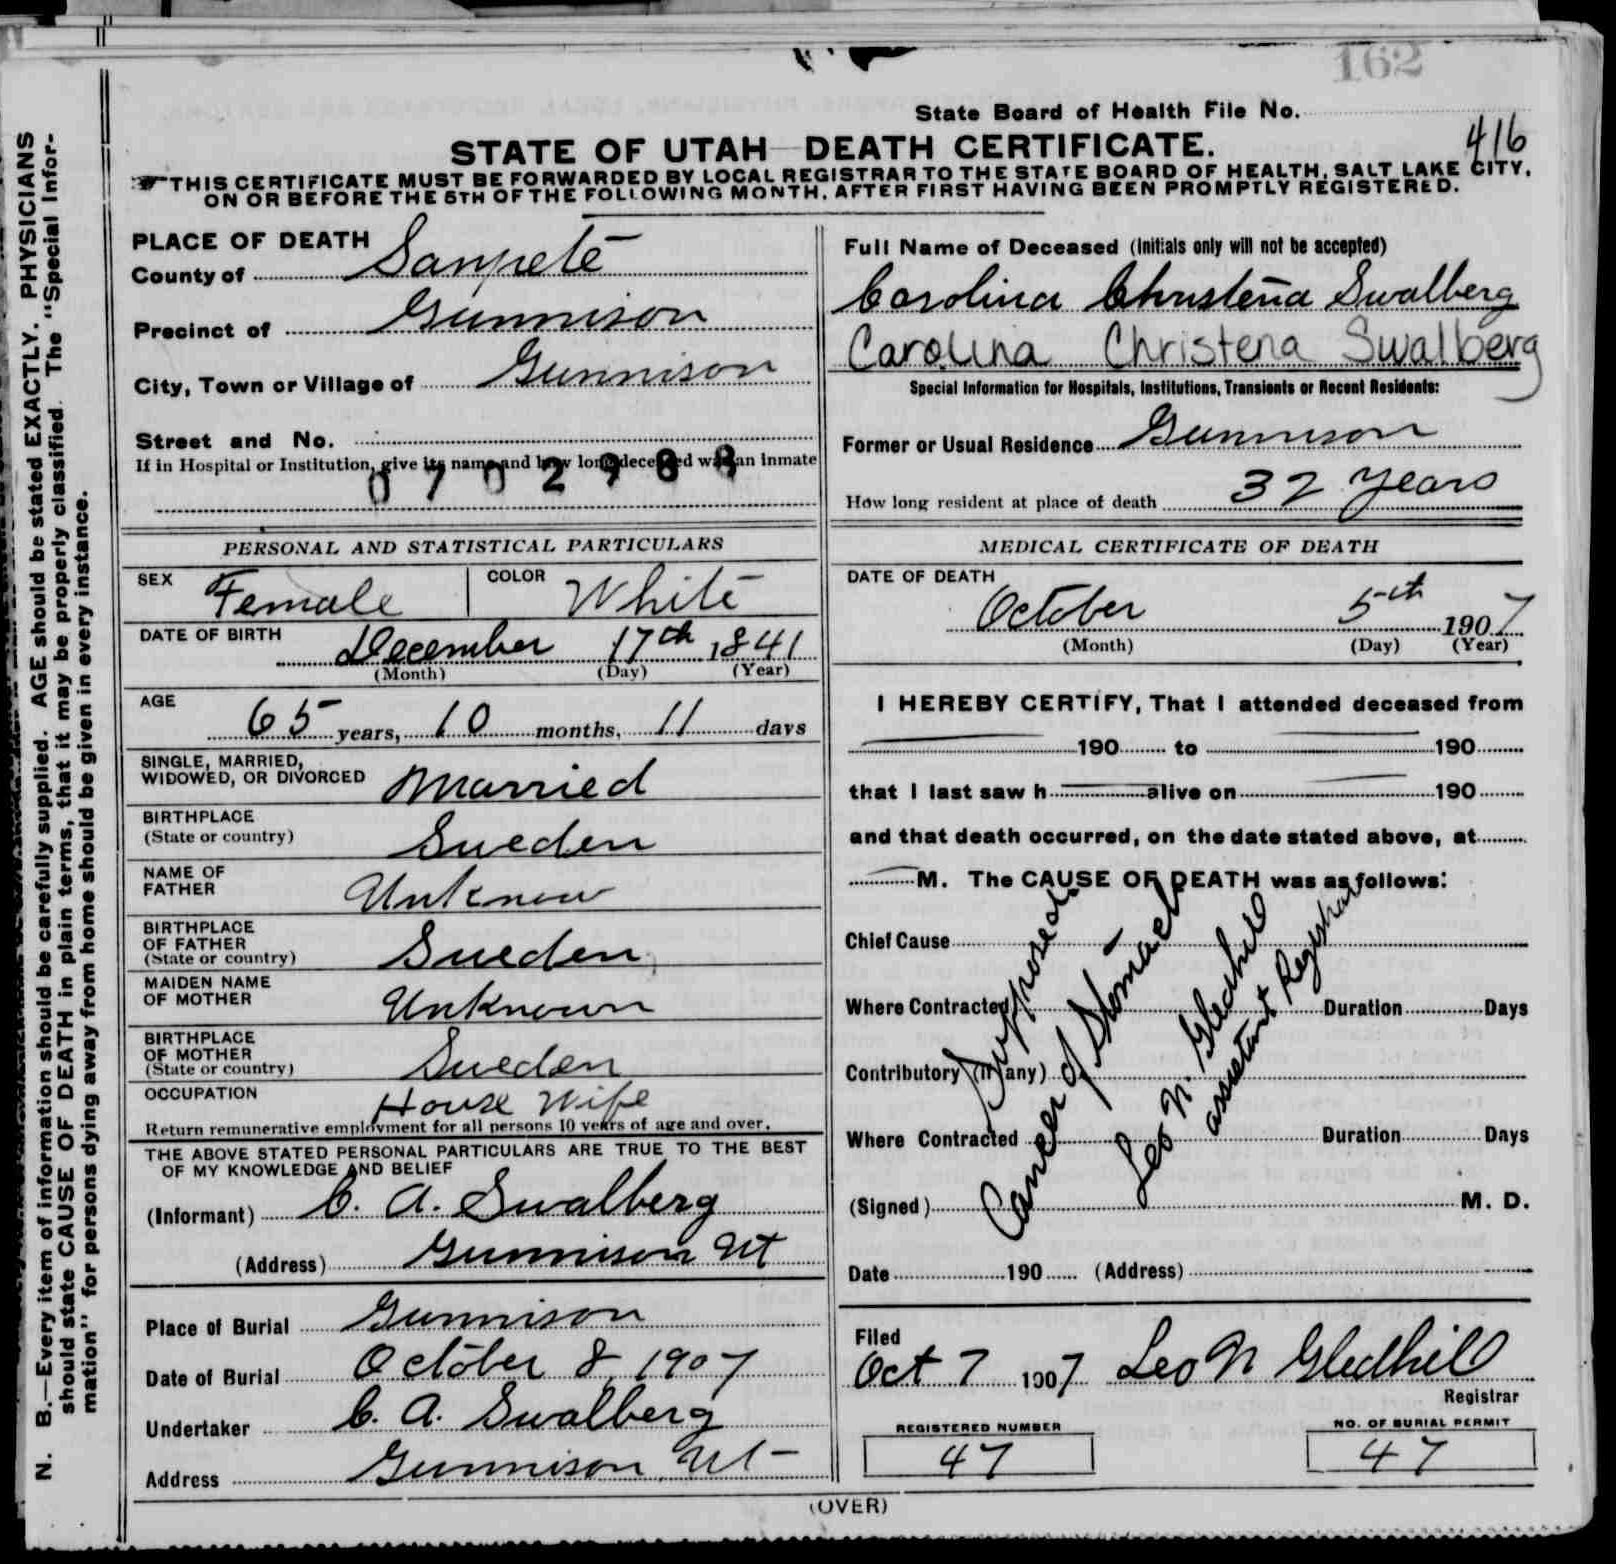 162
State Board of Health File No.
416
STATE OF UTAH DEATH CERTIFICATE.
THIS CERTIFICATE MUST BE FORWARDED BY LOCAL REGISTRAR TO THE STATE BOARD OF HEALTH, SALT LAKE CITY,
ON OR BEFORE THE 5TH OF THE FOLLOWING MONTH, AFTER FIRST HAVING BEEN PROMPTLY REGISTERED.
N. B.—Every item of information should be carefully supplied. AGE should be stated EXACTLY. PHYSICIANS
should state CAUSE OF DEATH in plain terms, that it may be properly classified. The "Special Infor-
mation" for persons dying away from home should be given in every instance.
PLACE OF DEATH
County of Sanpete
Precinct of Gunnison
City, Town or Village of Gunnison
Street and No.
If in Hospital or Institution, give its name and how long deceased was an inmate
0702988
PERSONAL AND STATISTICAL PARTICULARS
SEX Female COLOR White
DATE OF BIRTH
December 17th 1841
(Month) (Day) (Year)
AGE
65 years, 10 months, 11 days
SINGLE, MARRIED,
WIDOWED, OR DIVORCED Married
BIRTHPLACE
(State or country) Sweden
NAME OF
FATHER Unknow
BIRTHPLACE
OF FATHER
(State or country) Sweden
MAIDEN NAME
OF MOTHER Unknown
BIRTHPLACE
OF MOTHER
(State or country) Sweden
OCCUPATION House Wife
Return remunerative employment for all persons 10 years of age and over.
THE ABOVE STATED PERSONAL PARTICULARS ARE TRUE TO THE BEST
OF MY KNOWLEDGE AND BELIEF
(Informant) C. A. Swalberg
(Address) Gunnison Ut
Place of Burial Gunnison
Date of Burial October 8, 1907
Undertaker C. A. Swalberg
Address Gunnison Ut
Full Name of Deceased (Initials only will not be accepted)
Carolina Christena Swalberg
Carolina Christena Swalberg
Special Information for Hospitals, Institutions, Transients or Recent Residents:
Former or Usual Residence Gunnison
How long resident at place of death 32 Years
MEDICAL CERTIFICATE OF DEATH
DATE OF DEATH
October 5th 1907
(Month) (Day) (Year)
I HEREBY CERTIFY, That I attended deceased from
190 to 190
that I last saw h alive on 190
and that death occurred, on the date stated above, at
M. The CAUSE OF DEATH was as follows:
Chief Cause
Where Contracted Duration Days
Contributory (if any)
Where Contracted Duration Days
Supposed
Cancer of Stomach
Leo N. Gledhill
assistant Registrar
(Signed) M. D.
Date 190 (Address)
Filed
Oct 7 1907 Leo N Gledhill
Registrar
REGISTERED NUMBER
47
NO. OF BURIAL PERMIT
47
(OVER)